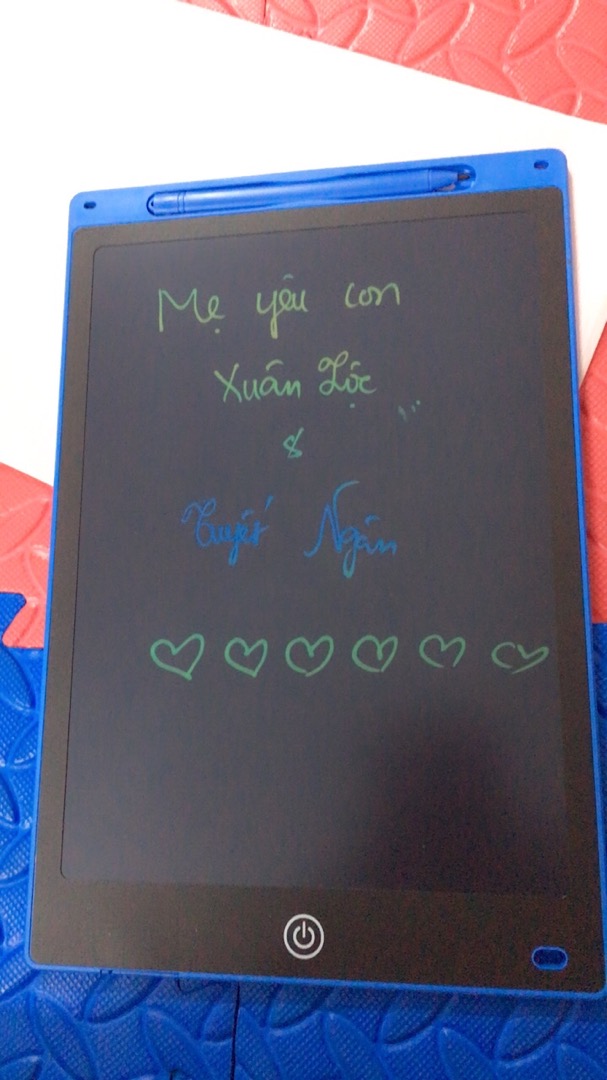 Mẹ yêu con
Xuân Lộc
&
Tuyết Ngân